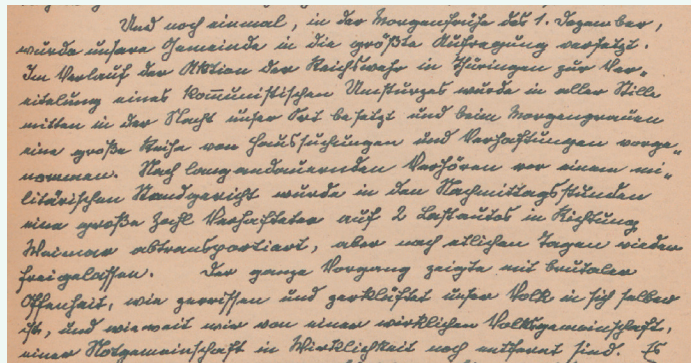 Und noch einmal, in der Morgenfrühe des 1. Dezember,
wurde unsere Gemeinde in die größte Aufregung versetzt.
Im Verlauf der Aktion der Reichswehr in Thüringen zur Ver-
eitelung eines kommunistischen Umsturzes wurde in aller Stille
mitten in der Nacht unser Ort besetzt und beim Morgengrauen
eine große Reihe von Haussuchungen und Verhaftungen vorge-
nommen. Nach langandauernden Verhören vor einem mi-
litärischen Standgericht wurde in den Nachmittagsstunden
eine große Zahl Verhafteter auf 2 Lastautos in Richtung
Weimar abtransportiert, aber nach etlichen Tagen wieder
freigelassen. Der ganze Vorgang zeigte mit brutaler
Offenheit, wie zerrissen und zerklüftet unser Volk in sich selber
ist, und wie weit wir von einer wirklichen Volksgemeinschaft,
einer Notgemeinschaft in Wirklichkeit noch entfernt sind. Es